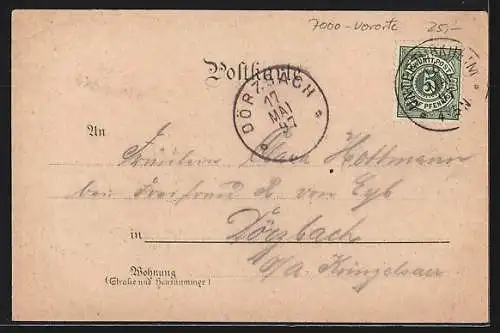 7000-Vororte 25,-
K. WÜRTT. POST
5
PFENNIG
Postkarte
DÖRZBACH
17
MAI
97
An
Fräulein Hottmann
bei Freifrau v. von Eyb
in Dörzbach
Wohnung
(Straße und Hausnummer)
O/A. Künzelsau